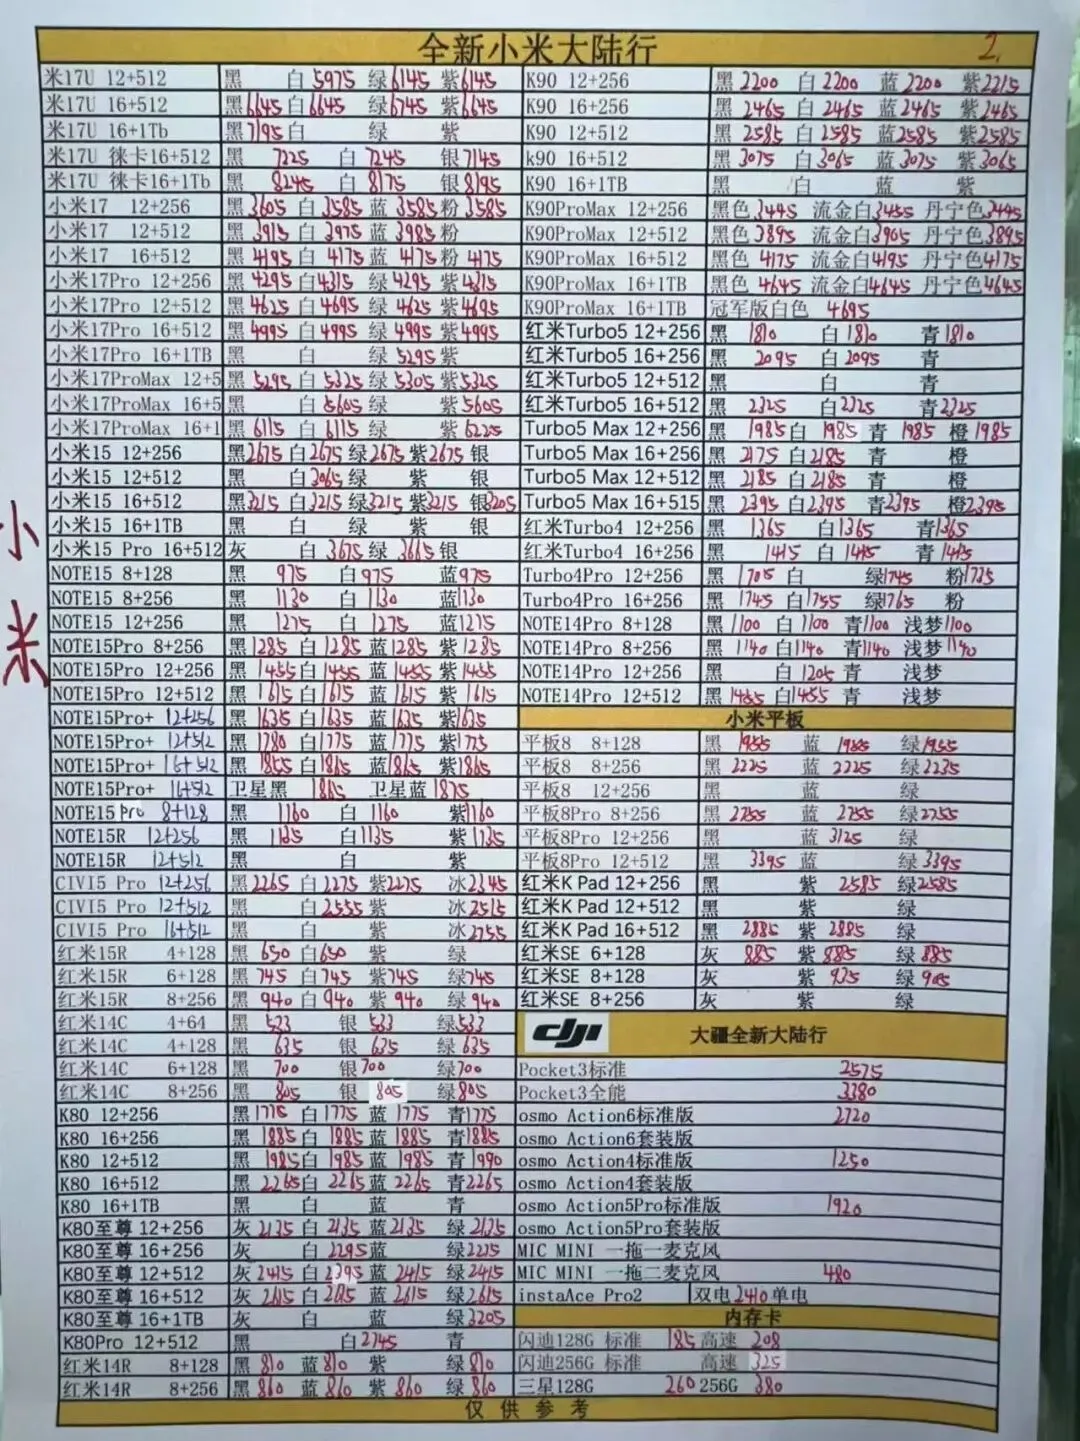 全新小米大陆行 2.
小米
米17U 12+512 黑 白5975 绿6145 紫6145
米17U 16+512 黑6645 白6645 绿6745 紫6645
米17U 16+1Tb 黑7195 白 绿 紫
米17U 徕卡16+512 黑 7225 白 7245 银7145
米17U 徕卡16+1Tb 黑 8245 白 8175 银8195
小米17 12+256 黑3605 白3585 蓝3585 粉3585
小米17 12+512 黑3915 白3975 蓝3985 粉
小米17 16+512 黑4195 白4175 蓝4175 粉4175
小米17Pro 12+256 黑4295 白4315 绿4295 紫4315
小米17Pro 12+512 黑4625 白4695 绿4625 紫4695
小米17Pro 16+512 黑4995 白4995 绿4995 紫4995
小米17Pro 16+1TB 黑 白 绿5295 紫
小米17ProMax 12+5 黑5295 白5325 绿5305 紫5325
小米17ProMax 16+5 黑 白5605 绿 紫5605
小米17ProMax 16+1 黑6115 白6115 绿 紫6225
小米15 12+256 黑2675 白2675 绿2675 紫2675 银
小米15 12+512 黑 白3065 绿 紫 银
小米15 16+512 黑3215 白3215 绿3215 紫3215 银3205
小米15 16+1TB 黑 白 绿 紫 银
小米15 Pro 16+512 灰 白3675 绿3665 银
NOTE15 8+128 黑 975 白975 蓝975
NOTE15 8+256 黑 1130 白1130 蓝1130
NOTE15 12+256 黑 1275 白 1275 蓝1275
NOTE15Pro 8+256 黑1285 白1285 蓝1285 紫1285
NOTE15Pro 12+256 黑1455 白1455 蓝1455 紫1455
NOTE15Pro 12+512 黑1615 白1615 蓝1615 紫1615
NOTE15Pro+ 12+256 黑1635 白1635 蓝1635 紫1635
NOTE15Pro+ 12+512 黑1780 白1775 蓝1775 紫1775
NOTE15Pro+ 16+512 黑1855 白1865 蓝1865 紫1865
NOTE15Pro+ 16+512 卫星黑 1865 卫星蓝1875
NOTE15 Pro 8+128 黑 1160 白 1160 紫1160
NOTE15R 12+256 黑 1135 白1135 紫1135
NOTE15R 12+512 黑 白 紫
CIVI5 Pro 12+256 黑2265 白2275 紫2275 冰2345
CIVI5 Pro 12+512 黑 白2555 紫 冰2515
CIVI5 Pro 16+512 黑 白 紫 冰2755
红米15R 4+128 黑650 白650 紫 绿
红米15R 6+128 黑745 白745 紫745 绿745
红米15R 8+256 黑940 白940 紫940 绿940
红米14C 4+64 黑 533 银 533 绿533
红米14C 4+128 黑 635 银 635 绿635
红米14C 6+128 黑 700 银700 绿700
红米14C 8+256 黑 805 银 805 绿805
K80 12+256 黑1775 白1775 蓝1775 青1775
K80 16+256 黑1885 白1885 蓝1885 青1885
K80 12+512 黑1985 白1985 蓝1985 青1990
K80 16+512 黑2265 白2265 蓝2265 青2265
K80 16+1TB 黑 白 蓝 青
K80至尊 12+256 灰2135 白2135 蓝2135 绿2135
K80至尊 16+256 灰 白2295 蓝 绿2275
K80至尊 12+512 灰2415 白2395 蓝2415 绿2415
K80至尊 16+512 灰2615 白2615 蓝2615 绿2615
K80至尊 16+1TB 灰 白 蓝 绿3205
K80Pro 12+512 黑 白2745 青
红米14R 8+128 黑810 蓝810 紫 绿810
红米14R 8+256 黑860 蓝860 紫860 绿860
K90 12+256 黑2200 白2200 蓝2200 紫2215
K90 16+256 黑2465 白2465 蓝2465 紫2465
K90 12+512 黑2585 白2585 蓝2585 紫2585
k90 16+512 黑3075 白3065 蓝3075 紫3065
K90 16+1TB 黑 白 蓝 紫
K90ProMax 12+256 黑色3445 流金白3455 丹宁色3445
K90ProMax 12+512 黑色3895 流金白3905 丹宁色3895
K90ProMax 16+512 黑色4175 流金白4195 丹宁色4175
K90ProMax 16+1TB 黑色4645 流金白4645 丹宁色4645
K90ProMax 16+1TB 冠军版白色 4695
红米Turbo5 12+256 黑 1810 白1810 青1810
红米Turbo5 16+256 黑 2095 白2095 青
红米Turbo5 12+512 黑 白 青
红米Turbo5 16+512 黑 2325 白2325 青2325
Turbo5 Max 12+256 黑 1985 白1985 青1985 橙1985
Turbo5 Max 16+256 黑2175 白2185 青 橙
Turbo5 Max 12+512 黑2185 白2185 青
Turbo5 Max 16+515 黑2395 白2395 青2395 橙2395
红米Turbo4 12+256 黑 1365 白1365 青1365
红米Turbo4 16+256 黑 1415 白1415 青1415
Turbo4Pro 12+256 黑1705 白 绿1745 粉1725
Turbo4Pro 16+256 黑1745 白1755 绿1765 粉
NOTE14Pro 8+128 黑1100 白1100 青1100 浅梦1100
NOTE14Pro 8+256 黑1140 白1140 青1140 浅梦1140
NOTE14Pro 12+256 黑 白1205 青 浅梦
NOTE14Pro 12+512 黑1455 白1455 青 浅梦
小米平板
平板8 8+128 黑 1955 蓝 1955 绿1955
平板8 8+256 黑 2225 蓝 2225 绿2235
平板8 12+256 黑 蓝 绿
平板8Pro 8+256 黑 2755 蓝 2755 绿2755
平板8Pro 12+256 黑 蓝 3125 绿
平板8Pro 12+512 黑 3395 蓝 绿3395
红米K Pad 12+256 黑 紫 2585 绿2585
红米K Pad 12+512 黑 紫 绿
红米K Pad 16+512 黑 2885 紫 2885 绿
红米SE 6+128 灰 885 紫885 绿885
红米SE 8+128 灰 紫 935 绿905
红米SE 8+256 灰 紫 绿
dji 大疆全新大陆行
Pocket3标准 2575
Pocket3全能 3380
osmo Action6标准版 2720
osmo Action6套装版
osmo Action4标准版 1250
osmo Action4套装版
osmo Action5Pro标准版 1920
osmo Action5Pro套装版
MIC MINI 一拖一麦克风
MIC MINI 一拖二麦克风 480
instaAce Pro2 双电2410 单电
内存卡
闪迪128G 标准 185 高速 208
闪迪256G 标准 高速 325
三星128G 260 256G 380
仅供参考